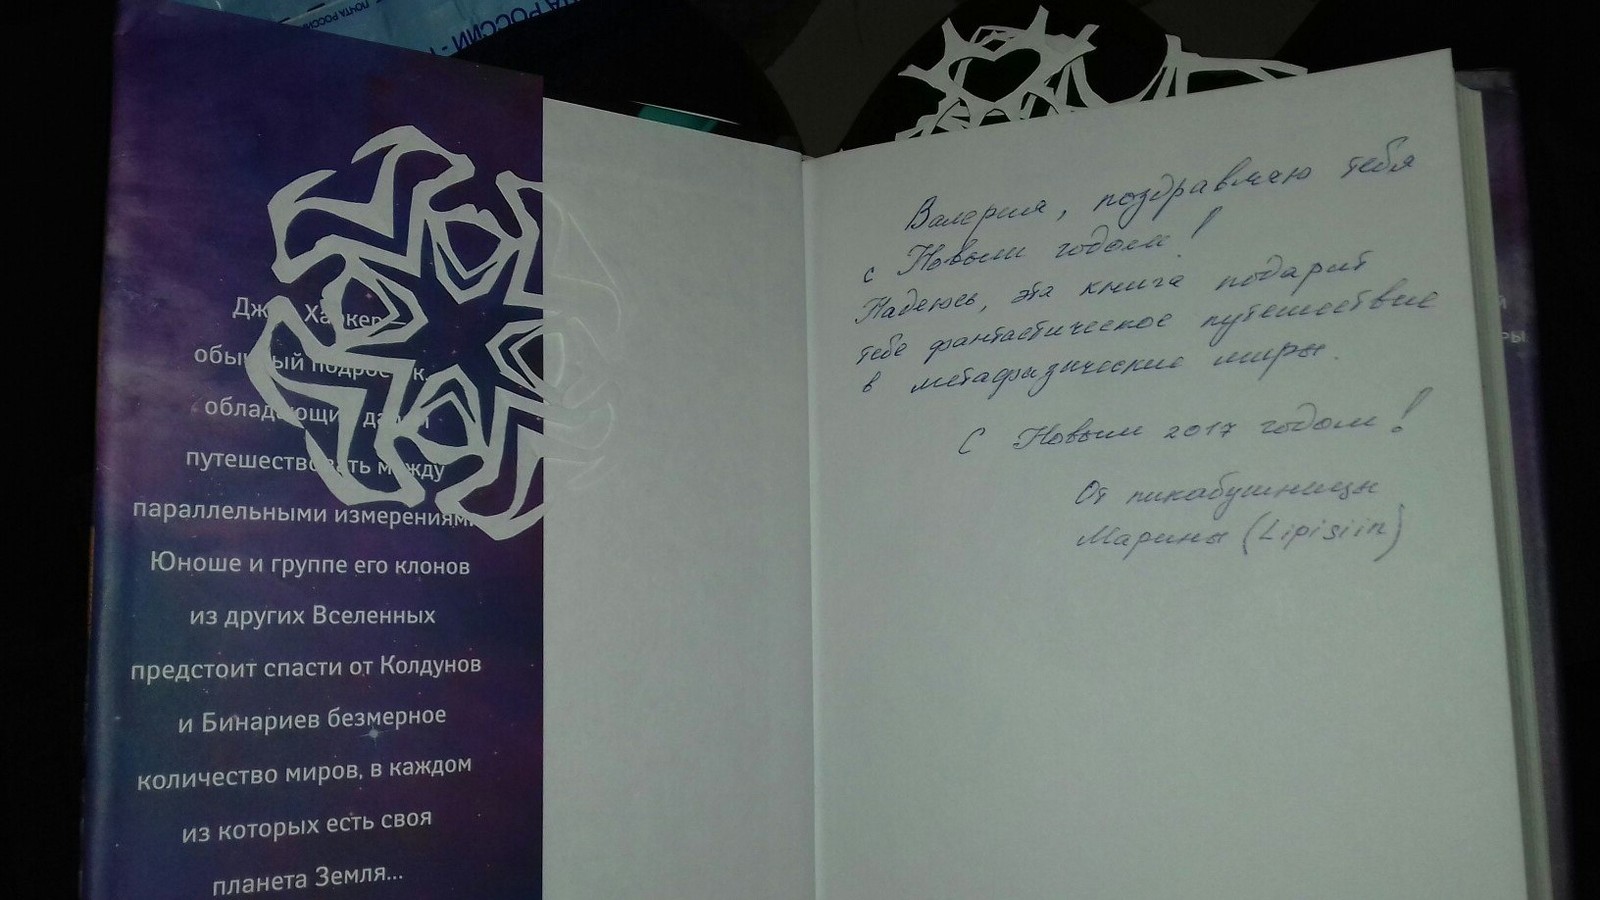 ПОЧТА РОССИИ
ПОЧТА РОССИ
ТА РОССИИ -
Джо Харкер —
обычный подросток,
обладающий даром
путешествовать между
параллельными измерениями.
Юноше и группе его клонов
из других Вселенных
предстоит спасти от Колдунов
и Бинариев безмерное
количество миров, в каждом
из которых есть своя
планета Земля...
Валерия, поздравляю тебя
с Новым годом!
Надеюсь, эта книга подарит
тебе фантастическое путешествие
в метафизические миры.
С Новым 2017 годом!
От пикабушницы
Марины (Lipisiin)